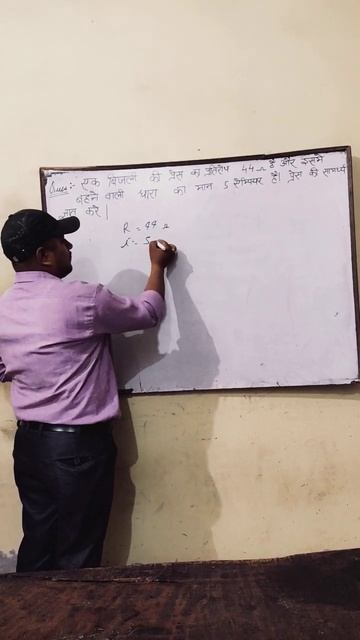 Ques:- एक बिजली की प्रेस का प्रतिरोध 44 Ω है और इसमें
बहने वाली धारा का मान 5 ऐम्पियर है। प्रेस की सामर्थ्य
ज्ञात करें।
R = 44 Ω
i = 5